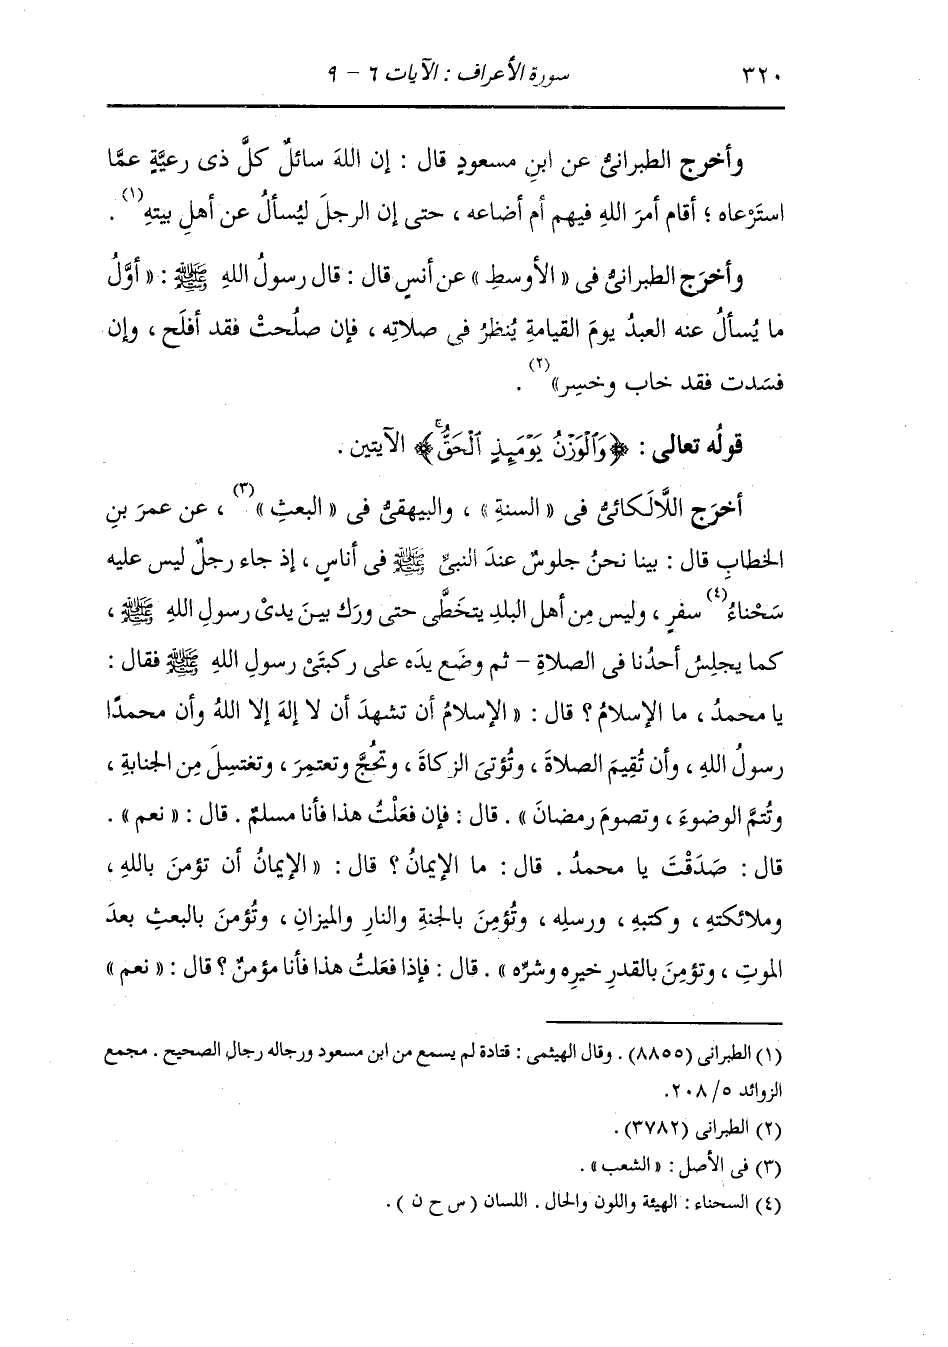 ٣٢٠ سورة الأعراف : الآيات ٦ - ٩
وأخرج الطبرانىُّ عن ابنِ مسعودٍ قال : إن اللهَ سائلٌ كلَّ ذى رعيَّةٍ عمَّا
استَرْعاه ؛ أقام أمرَ اللهِ فيهم أم أضاعه ، حتى إن الرجلَ ليُسألُ عن أهلِ بيتِه(١) .
وأخرَج الطبرانىُّ فى « الأوسطِ » عن أنسٍ قال : قال رسولُ اللهِ ﷺ : « أوَّلُ
ما يُسألُ عنه العبدُ يومَ القيامةِ يُنظرُ فى صلاتِه ، فإن صلُحتْ فقد أفلَح ، وإن
فسَدت فقد خاب وخسِر»(٢) .
قولُه تعالى : ﴿وَٱلْوَزْنُ يَوْمَئِذٍ ٱلْحَقُّۚ﴾ الآيتين .
أخرَج اللَّالَكائىُّ فى « السنةِ » ، والبيهقىُّ فى « البعثِ »(٣) ، عن عمرَ بنِ
الخطابِ قال : بينا نحنُ جلوسٌ عندَ النبىِّ ﷺ فى أناسٍ ، إذ جاء رجلٌ ليس عليه
سَحْناءُ(٤) سفرٍ ، وليس مِن أهل البلدِ يتخَطَّى حتى ورَك بينَ يدىْ رسولِ اللهِ ﷺ ،
كما يجلِسُ أحدُنا فى الصلاةِ - ثم وضَع يدَه على ركبتَىْ رسولِ اللهِ ﷺ فقال :
يا محمدُ ، ما الإسلامُ ؟ قال : « الإسلامُ أن تشهدَ أن لا إلهَ إلا اللهُ وأن محمدًا
رسولُ اللهِ ، وأن تُقِيمَ الصلاةَ ، وتُؤتىَ الزكاةَ ، وتحُجَّ وتعتمِرَ ، وتغتسِلَ مِن الجنابةِ ،
وتُتمَّ الوضوءَ ، وتصومَ رمضانَ » . قال : فإن فعَلْتُ هذا فأنا مسلمٌ . قال : « نعم » .
قال : صَدَقْتَ يا محمدُ . قال : ما الإيمانُ ؟ قال : « الإيمانُ أن تؤمنَ باللهِ ،
وملائكتهِ ، وكتبهِ ، ورسلِه ، وتُؤمِنَ بالجنةِ والنارِ والميزانِ ، وتُؤمنَ بالبعثِ بعدَ
الموتِ ، وتؤمِنَ بالقدرِ خيرِه وشرِّه » . قال : فإذا فعَلتُ هذا فأنا مؤمنٌ ؟ قال : « نعم »
(١) الطبرانى (٨٨٥٥) . وقال الهيثمى : قتادة لم يسمع من ابن مسعود ورجاله رجال الصحيح . مجمع
الزوائد ٥/ ٢٠٨.
(٢) الطبرانى (٣٧٨٢) .
(٣) فى الأصل : « الشعب» .
(٤) السحناء : الهيئة واللون والحال . اللسان ( س ح ن ) .